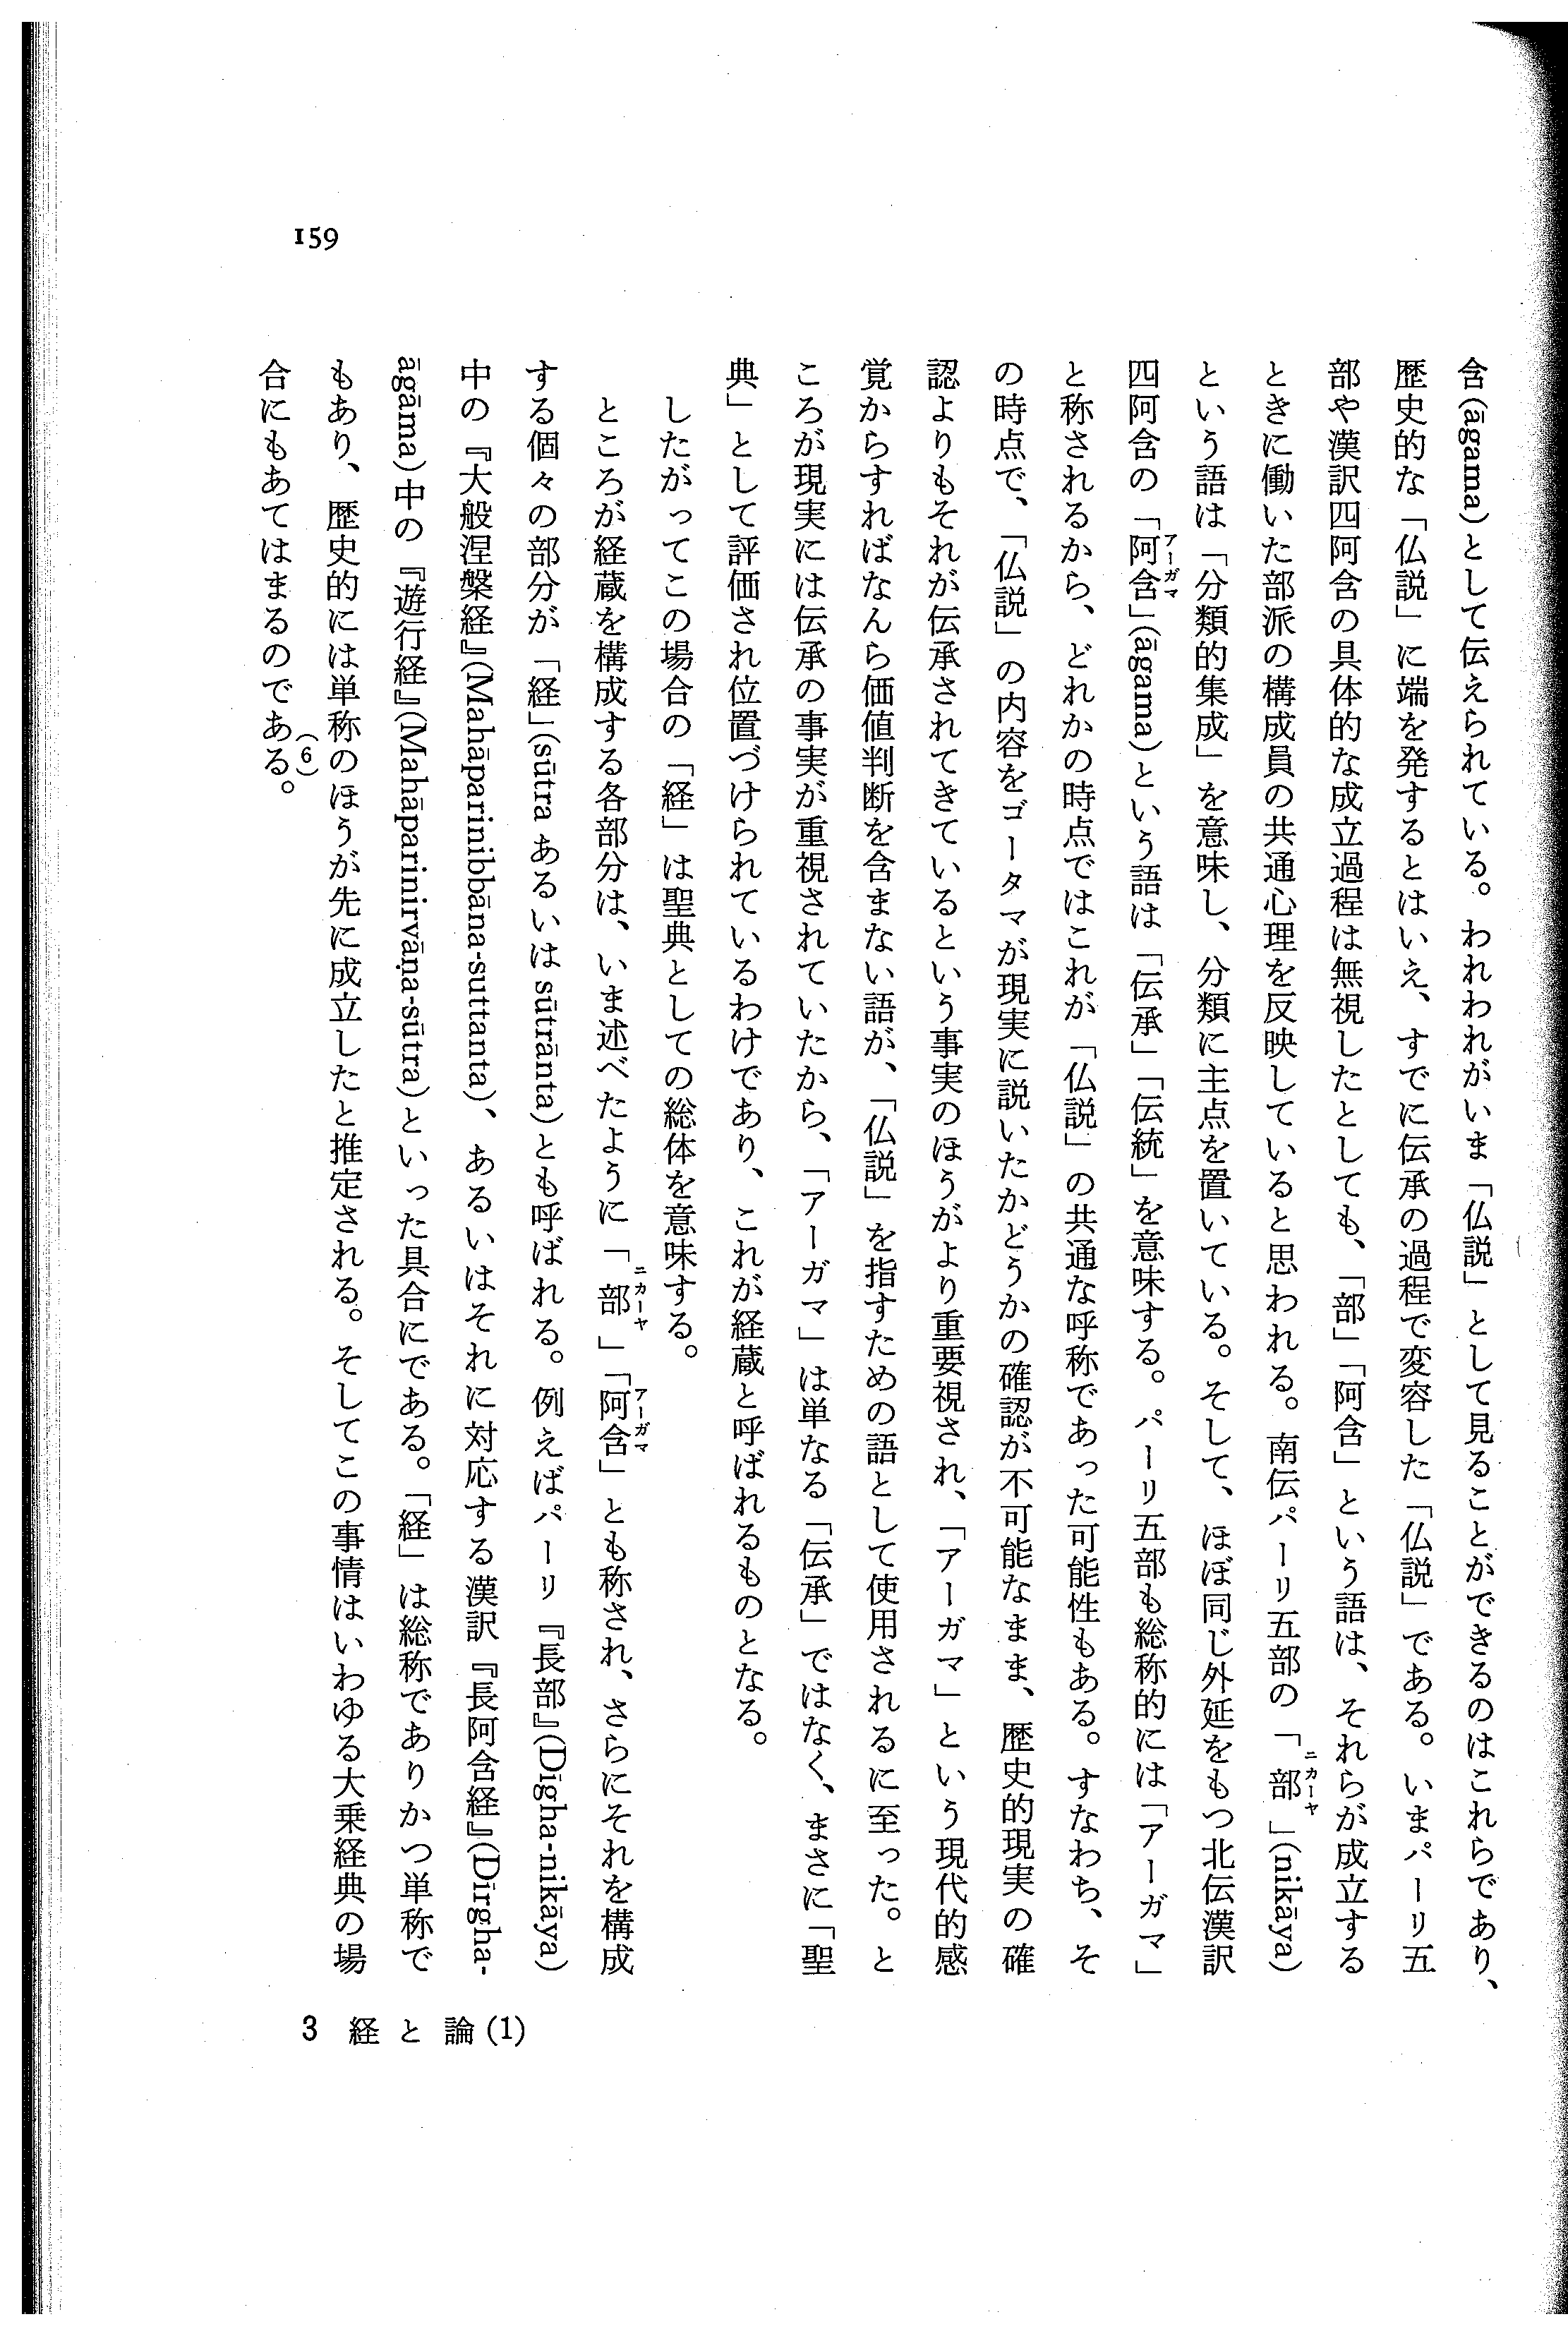 含(āgama)として伝えられている。われわれがいま「仏説」として見ることができるのはこれらであり、
歴史的な「仏説」に端を発するとはいえ、すでに伝承の過程で変容した「仏説」である。いまパーリ五
部や漢訳四阿含の具体的な成立過程は無視したとしても、「部」「阿含」という語は、それらが成立する
ときに働いた部派の構成員の共通心理を反映していると思われる。南伝パーリ五部の「部ニカーヤ」(nikāya)
という語は「分類的集成」を意味し、分類に主点を置いている。そして、ほぼ同じ外延をもつ北伝漢訳
四阿含の「阿含アーガマ」(āgama)という語は「伝承」「伝統」を意味する。パーリ五部も総称的には「アーガマ」
と称されるから、どれかの時点ではこれが「仏説」の共通な呼称であった可能性もある。すなわち、そ
の時点で、「仏説」の内容をゴータマが現実に説いたかどうかの確認が不可能なまま、歴史的現実の確
認よりもそれが伝承されてきているという事実のほうがより重要視され、「アーガマ」という現代的感
覚からすればなんら価値判断を含まない語が、「仏説」を指すための語として使用されるに至った。と
ころが現実には伝承の事実が重視されていたから、「アーガマ」は単なる「伝承」ではなく、まさに「聖
典」として評価され位置づけられているわけであり、これが経蔵と呼ばれるものとなる。
したがってこの場合の「経」は聖典としての総体を意味する。
ところが経蔵を構成する各部分は、いま述べたように「部ニカーヤ」「阿含アーガマ」とも称され、さらにそれを構成
する個々の部分が「経」(sūtra あるいは sūtrānta)とも呼ばれる。例えばパーリ『長部』(Dīgha-nikāya)
中の『大般涅槃経』(Mahāparinibbāna-suttanta)、あるいはそれに対応する漢訳『長阿含経』(Dīrgha-
āgāma)中の『遊行経』(Mahāparinirvāṇa-sūtra)といった具合にである。「経」は総称でありかつ単称で
もあり、歴史的には単称のほうが先に成立したと推定される。そしてこの事情はいわゆる大乗経典の場
合にもあてはまるのである(6)。
159
3 経と論(1)